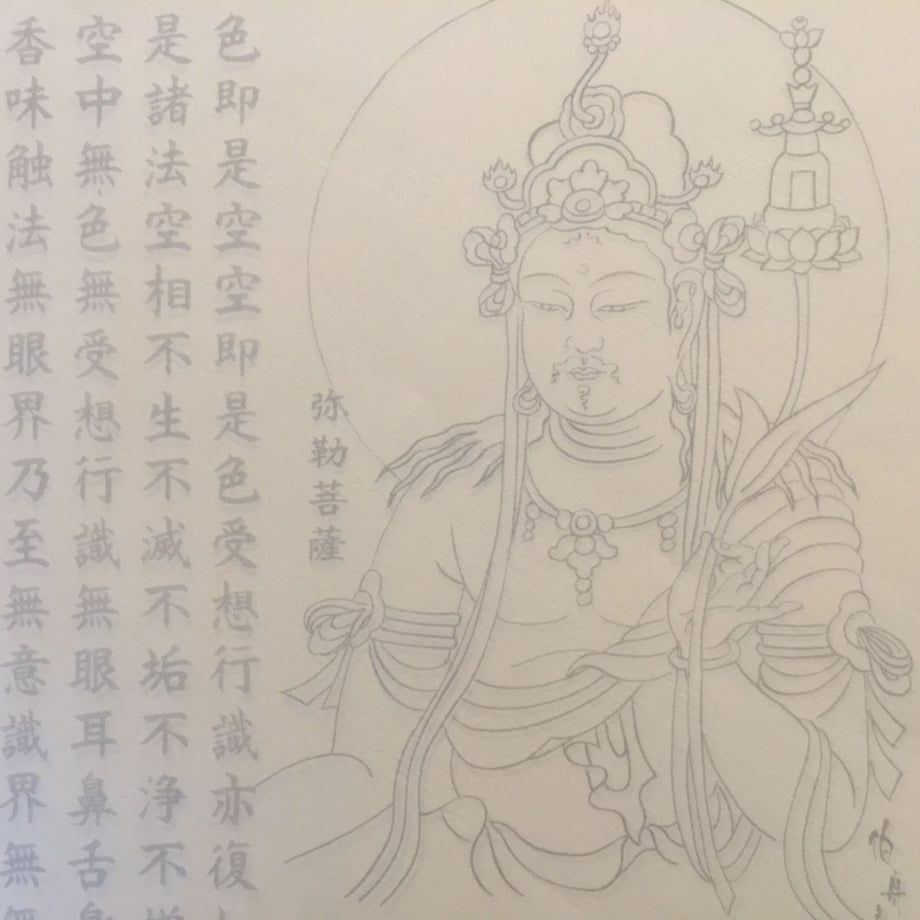 色即是空空即是色受想行識亦復
是諸法空相不生不滅不垢不浄不
空中無色無受想行識無眼耳鼻舌
香味触法無眼界乃至無意識界無
弥勒菩薩